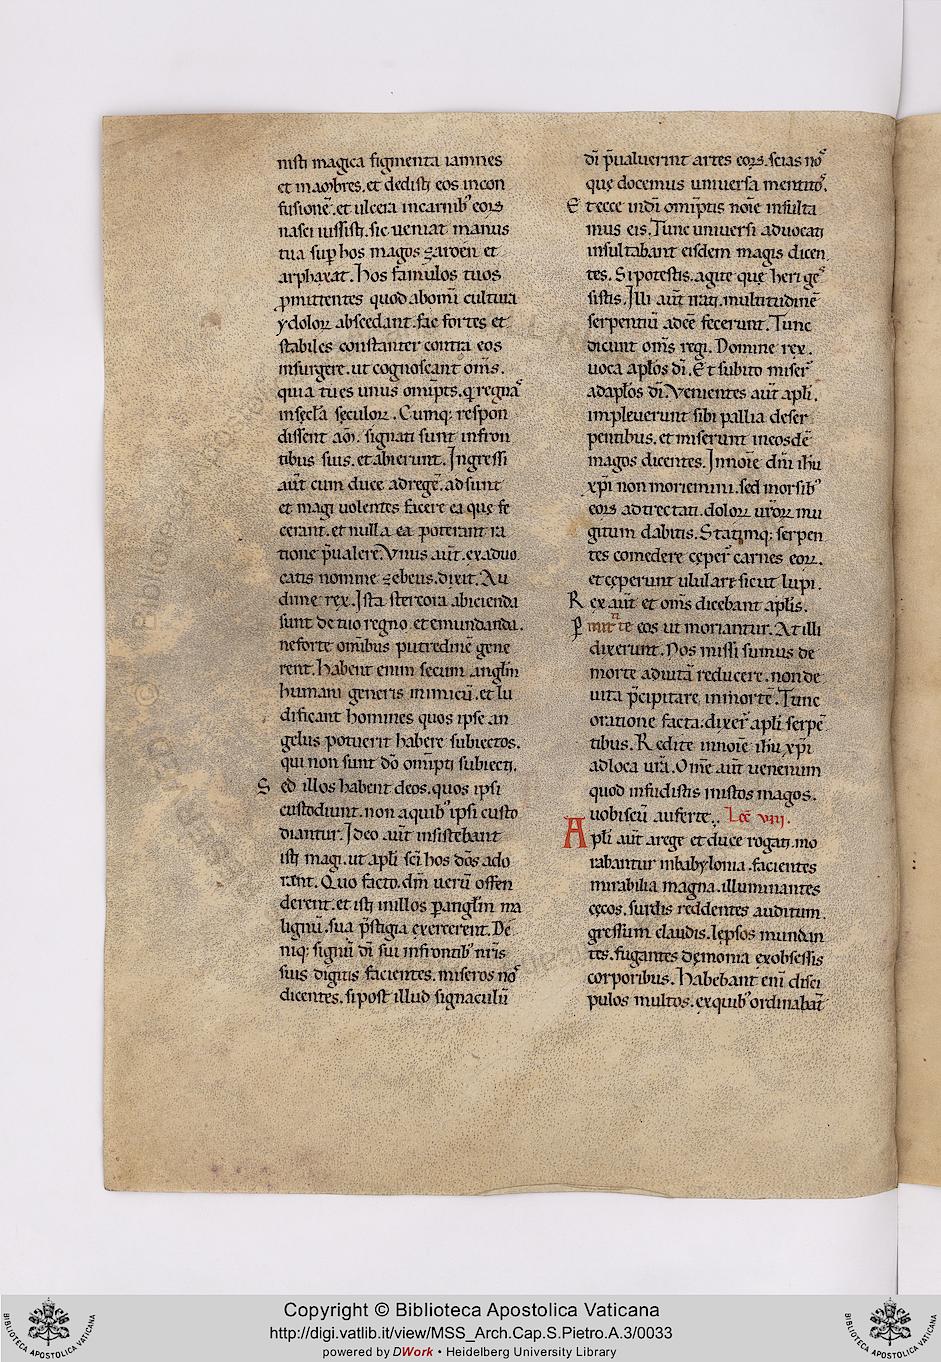 nisti magica figmenta iamnes
et mambres. et dedisti eos incon
fusionē. et ulcera incarnibꝰ eoꝝ
nasci iussisti. sic ueniat manus
tua suꝑ hos magos zaroen et
arphaxat. Hos famulos tuos
ꝓmittentes quod abomī cultura
ydoloꝝ abscedant. fac fortes et
stabiles constanter contra eos
insurgere. ut cognoscant oms̄.
quia tu es unus omīpts. q̄ regnaˀ
insecl̄a sęculoꝝ. Cumq; respon
dissent am̄. signati sunt infron
tibus suis. et abierunt. Ingressi
aūt cum duce adregē. adsunt
et magi uolentes facere ea quę fe
cerant. et nulla ea poterant ra
tione p̄ualere. Vnus aūt. exaduo
catis nomine zebeus. dixit. Au
di me rex. Ista stercora abicienda
sunt de tuo regno. et emundanda.
neforte omībus putredinē gene
rent. Habent enim secum angl̄m
humani generis inimicū. et lu
dificant homines quos ipse an
gelus potuerit habere subiectos.
qui non sunt dō omīpti subiecti.
Sed illos habent deos. quos ipsi
custodiunt. non aquibꝰ ipsi custo
diantur. Ideo aūt insistebant
isti magi. ut apl̄i sc̄i hos dōs ado
rent. Quo facto. dm̄ uerū offen
derent. et isti inillos ꝑangl̄m ma
lignū. sua p̄stigia exercerent. De
niq; signū dī sui infrontibꝰ nr̄is
suis digitis facientes. miseros noˀ
dicentes. si post illud signaculū
dī p̄ualuerint artes eoꝝ. scias noˀ
quę docemus uniuersa mentitoˀ.
Et ecce indī omīptis noīe insulta
mus eis. Tunc uniuersi aduocati
insultabant eisdem magis dicen
tes. Si potestis. agite quę heri geˀ
sistis. Illi aūt irati. multitudinē
serpentiū adeē fecerunt. Tunc
dicunt oms̄ regi. Domine rex.
uoca apl̄os dī. Et subito miserˀ
adapl̄os dī. Venientes aūt apl̄i.
impleuerunt sibi pallia deser
pentibus. et miserunt ineosdē
magos dicentes. Innoīe dn̄i ih̄u
xp̄i non moriemini. sed morsibꝰ
eoꝝ adtrectati. doloꝝ uroꝝ mu
gitum dabitis. Statimq; serpen
tes comedere cęperˀ carnes eoꝝ.
et cęperunt ululare sicut lupi.
Rex aūt et oms̄ dicebant apl̄is.
ꝑmittite eos ut moriantur. At illi
dixerunt. Nos missi sumus de
morte aduitā reducere. non de
uita p̄cipitare, inmortē. Tunc
oratione facta: dixerˀ apl̄i serpē
tibus. Redite innoīe ih̄u xp̄i
adloca ur̄a. Omē aūt uenenum
quod infudistis inistos magos.
uobiscū auferte.. Lec̄ viii.
Apl̄i aūt arege et duce rogati. mo
rabantur inbabylonia. facientes
mirabilia magna. illuminantes
cęcos. surdis reddentes auditum.
gressum claudis. lepsos mundan
tes. fugantes dęmonia exobsessis
corporibus. Habebant enī disci
pulos multos. exquibꝰ ordinabāt
Copyright © Biblioteca Apostolica Vaticana
http://digi.vatlib.it/view/MSS_Arch.Cap.S.Pietro.A.3/0033
powered by DWork • Heidelberg University Library